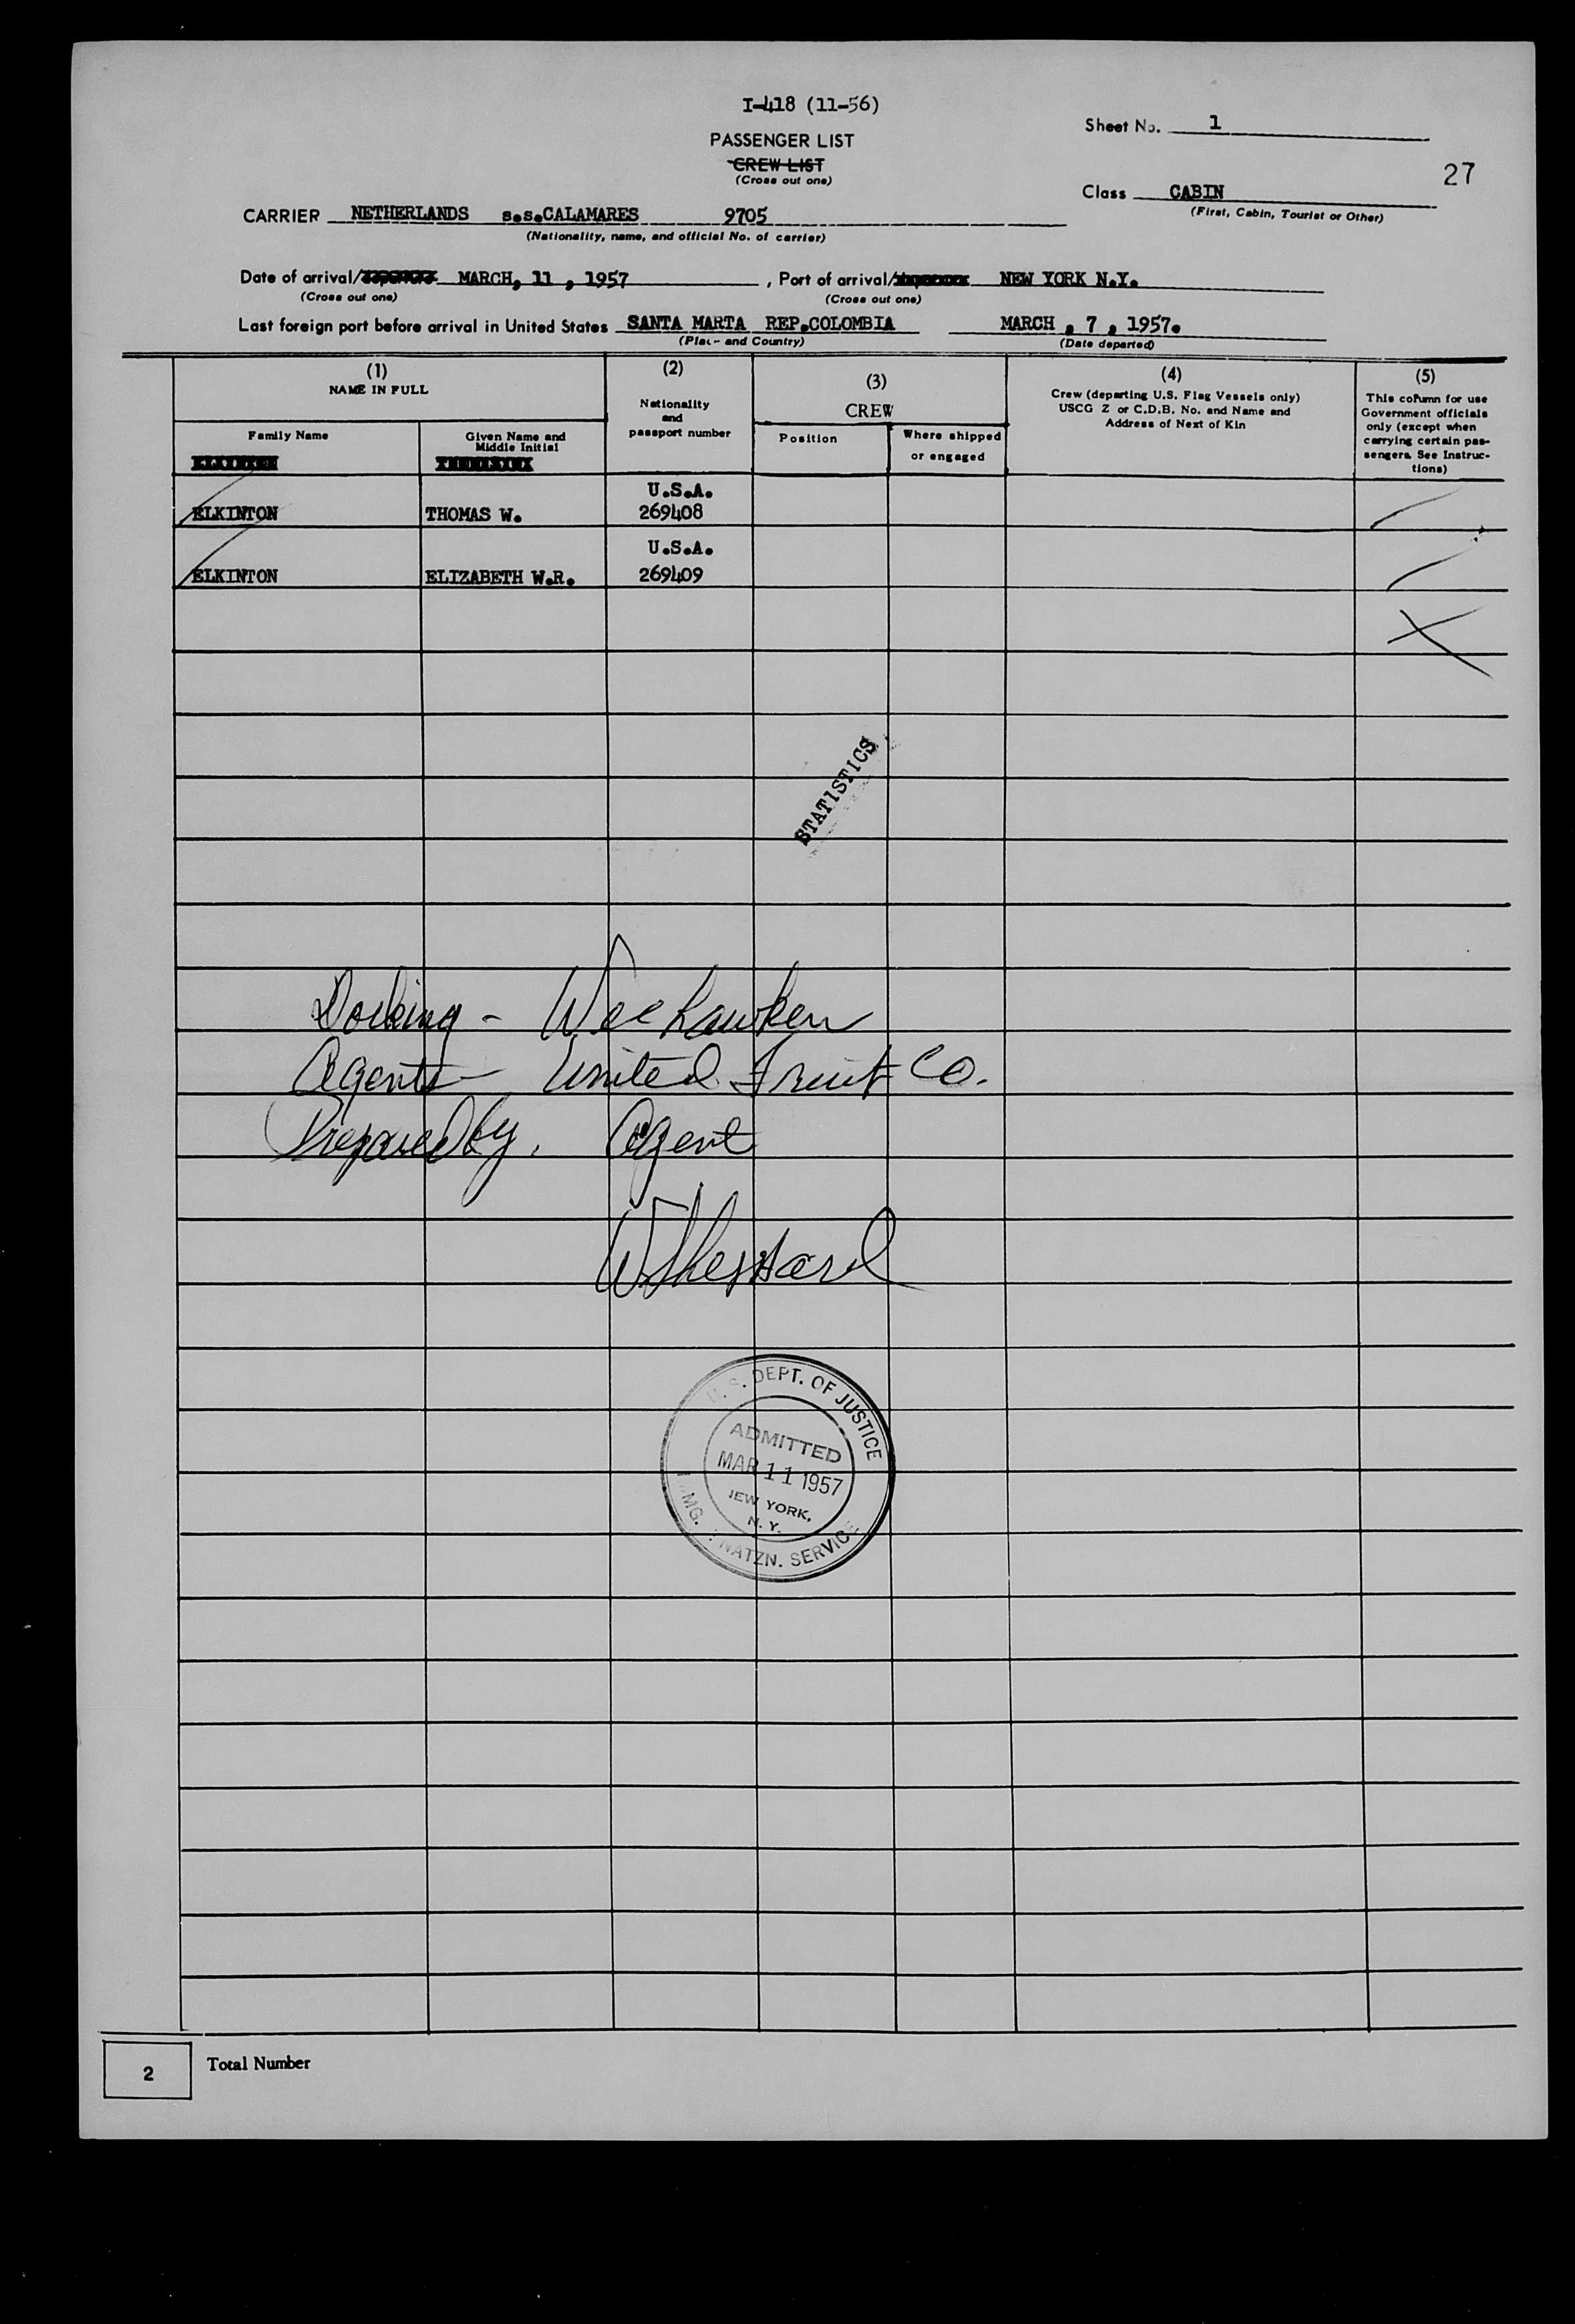 I-418 (11-56)
Sheet No. 1
PASSENGER LIST
CREW LIST
(Cross out one)
27
Class CABIN
(First, Cabin, Tourist or Other)
CARRIER NETHERLANDS s.s.CALAMARES 9705
(Nationality, name, and official No. of carrier)
Date of arrival/ MARCH, 11 , 1957 , Port of arrival/ NEW YORK N.Y.
(Cross out one) (Cross out one)
Last foreign port before arrival in United States SANTA MARTA REP.COLOMBIA MARCH , 7 , 1957.
(Place and Country) (Date departed)
(1) (2) (3) (4) (5)
NAME IN FULL
Nationality
and
passport number
CREW
Crew (departing U.S. Flag Vessels only)
USCG Z or C.D.B. No. and Name and
Address of Next of Kin
This column for use
Government officials
only (except when
carrying certain pas-
sengers. See Instruc-
tions)
Family Name
Given Name and
Middle Initial
Position
Where shipped
or engaged
U.S.A.
ELKINTON THOMAS W. 269408
U.S.A.
ELKINTON ELIZABETH W.R. 269409
STATISTICS
Docking - Weehawken
Agents - United Fruit Co.
Prepared by. Agent
W Sheppard
U. S. DEPT. OF JUSTICE
ADMITTED
MAR 11 1957
NEW YORK,
N. Y.
IMMG. NATZN. SERVICE
2 Total Number